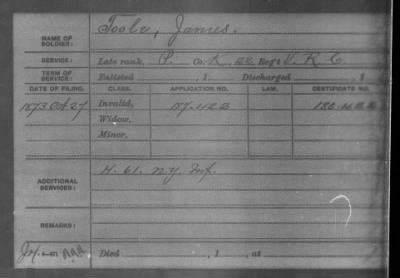 NAME OF SOLDIER: Toole, James.
SERVICE: Late rank, P. Co. K, 22 Reg't V. R. C.
TERM OF SERVICE: Enlisted , 1 Discharged , 1
DATE OF FILING. CLASS. APPLICATION NO. LAW. CERTIFICATE NO.
1873 Oct 27 Invalid,
Widow,
Minor,
ADDITIONAL SERVICES: K. 61. N.Y. Inf.
REMARKS:
Died , 1 , at